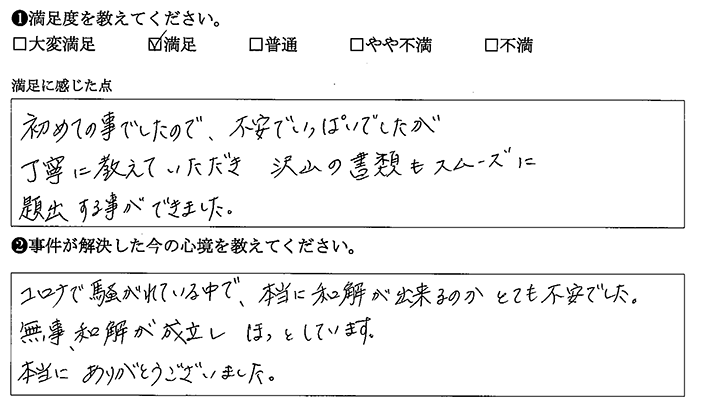 ❶満足度を教えてください。
□大変満足 ☑満足 □普通 □やや不満 □不満
満足に感じた点
初めての事でしたので、不安でいっぱいでしたが
丁寧に教えていただき 沢山の書類もスムーズに
題出する事ができました。
❷事件が解決した今の心境を教えてください。
コロナで騒がれている中で、本当に和解が出来るのかとても不安でした。
無事、和解が成立し ほっとしています。
本当に ありがとうございました。